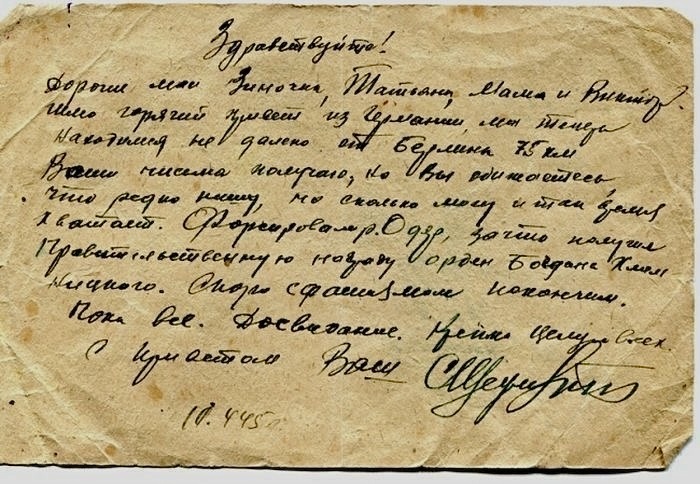 Здравствуйте!
Дорогие мои Зиночка, Татьяна, Мама и Виктор.
Шлю горячий привет из Германии, мы теперь
находимся не далеко от Берлина 75 км
Ваши письма получаю, но Вы обижаетесь,
что редко пишу, но сколько могу и так время
хватает. Форсировали р. Одер, за что получил
Правительственную награду орден Богдана Хмель
ницкого. Скоро с фашизмом покончим.
Пока все. Досвидание. Крепко целую всех
с приветом Ваш
10.4.45